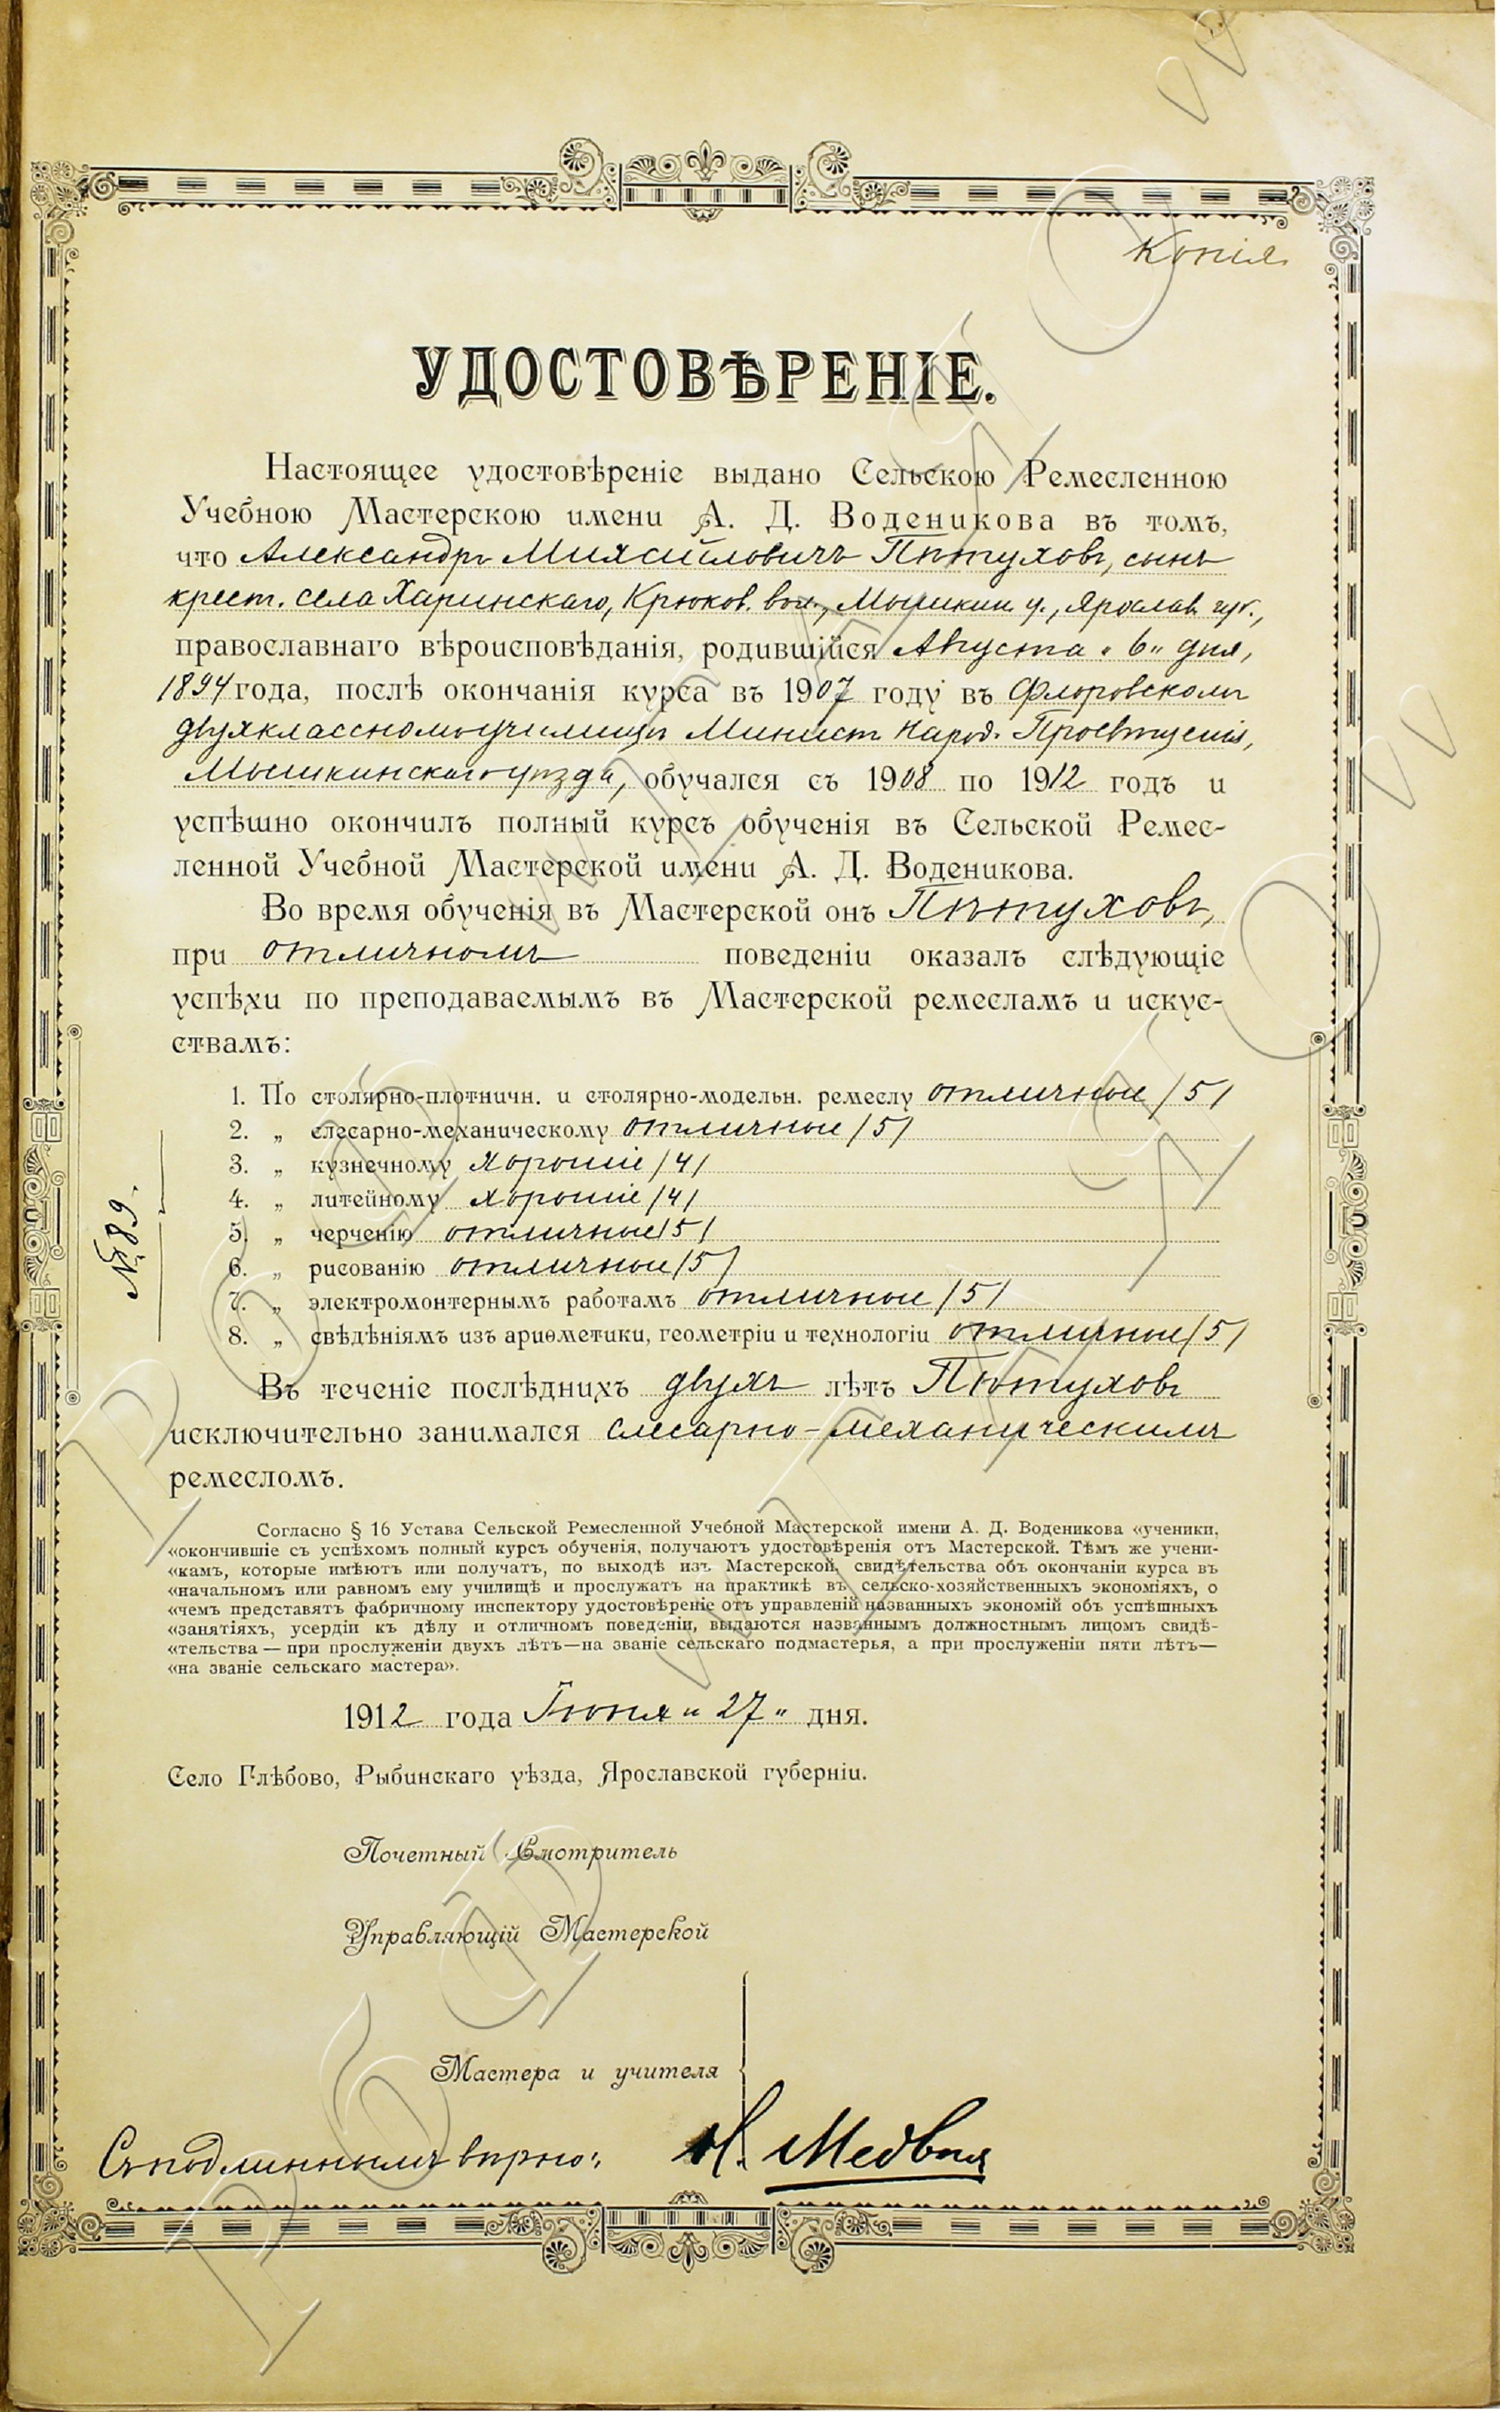 Копія
УДОСТОВѢРЕНІЕ.
Настоящее удостовѣреніе выдано Сельскою Ремесленною
Учебною Мастерскою имени А. Д. Воденикова въ томъ,
что Александръ Михайловичъ Пѣтуховъ, сынъ
крест. села Харинскаго, Крюков. вол., Мышкин. у., Ярослав. губ.,
православнаго вѣроисповѣданія, родившійся Августа „6" дня,
1894 года, послѣ окончанія курса въ 1907 году въ Флоровскомъ
двухклассномъ училищѣ Минист. Народ. Просвѣщенія,
Мышкинскаго уѣзда, обучался съ 1908 по 1912 годъ и
успѣшно окончилъ полный курсъ обученія въ Сельской Ремес-
ленной Учебной Мастерской имени А. Д. Воденикова.
Во время обученія въ Мастерской онъ Пѣтуховъ,
при отличномъ поведеніи оказалъ слѣдующіе
успѣхи по преподаваемымъ въ Мастерской ремесламъ и искус-
ствамъ:
1. По столярно-плотничн. и столярно-модельн. ремеслу отличные /5/
2. „ слесарно-механическому отличные /5/
3. „ кузнечному хорошіе /4/
4. „ литейному хорошіе /4/
5. „ черченію отличные /5/
6. „ рисованію отличные /5/
7. „ электромонтернымъ работамъ отличные /5/
8. „ свѣдѣніямъ изъ ариѳметики, геометріи и технологіи отличные /5/
№ 89.
Въ теченіе послѣднихъ двухъ лѣтъ Пѣтуховъ
исключительно занимался слесарно-механическимъ
ремесломъ.
Согласно § 16 Устава Сельской Ремесленной Учебной Мастерской имени А. Д. Воденикова «ученики,
«окончившіе съ успѣхомъ полный курсъ обученія, получаютъ удостовѣренія отъ Мастерской. Тѣмъ же учени-
«камъ, которые имѣютъ или получатъ, по выходѣ изъ Мастерской, свидѣтельства объ окончаніи курса въ
«начальномъ или равномъ ему училищѣ и прослужатъ на практикѣ въ сельско-хозяйственныхъ экономіяхъ, о
«чемъ представятъ фабричному инспектору удостовѣреніе отъ управленій названныхъ экономій объ успѣшныхъ
«занятіяхъ, усердіи къ дѣлу и отличномъ поведеніи, выдаются названнымъ должностнымъ лицомъ свидѣ-
«тельства — при прослуженіи двухъ лѣтъ—на званіе сельскаго подмастерья, а при прослуженіи пяти лѣтъ—
«на званіе сельскаго мастера».
1912 года Іюня „27" дня.
Село Глѣбово, Рыбинскаго уѣзда, Ярославской губерніи.
Почетный Смотритель
Управляющій Мастерской
Мастера и учителя
Съ подлиннымъ вѣрно: